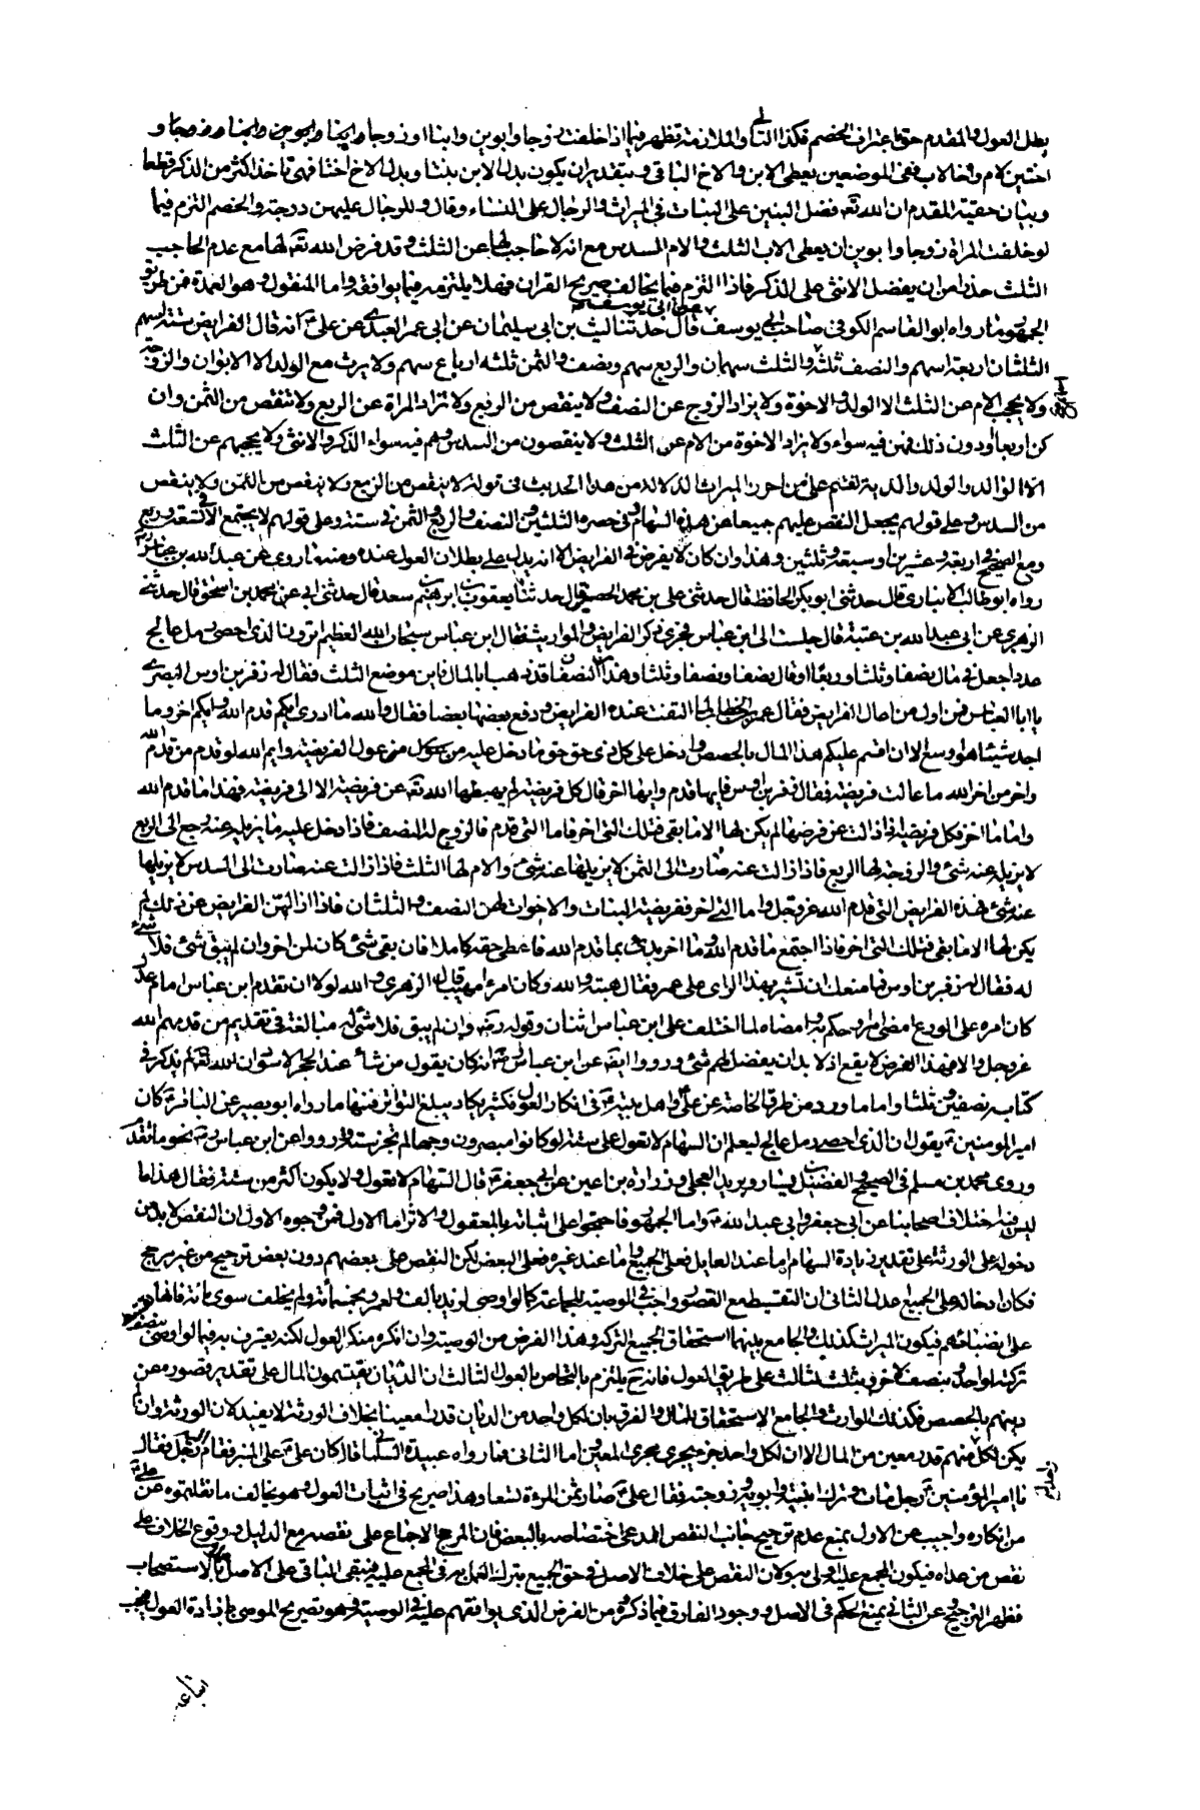 بطل العول والمقدم حق باعتراف الخصم فكذا التالي والملازمة تظهر فيما اذا خلفت زوجا وابوين وابنا او زوجا وابوين وابنا وزوجا و
اختين لام واخا لاب ففي الموضعين يعطى الابن والاخ الباقي وبتقدير ان يكون بدل الابن بنتا وبدل الاخ اختا فهي تاخذ اكثر من الذكر قطعا
وبيان حقية المقدم ان الله تعه فضل البنين على البنات في الميراث والرجال على النساء وقال وللرجال عليهن درجة والخصم التزم فيما
لو خلفت المراة زوجا وابوين ان يعطى الاب الثلث والام السدس مع انه لا حاجب لها عن الثلث وقد فرض الله تعه لها مع عدم الحاجب
الثلث حذرا من ان يفضل الانثى على الذكر فاذا التزم فيما يخالف صريح القران فهلا يلتزمه فيما يوافقه واما المنقول وهو العمدة فمن طريق
الجمهور ما رواه ابو القاسم الكوفي صاحب ابي يوسف قال حدثنا ليث بن ابي سليمان عن ابي عمر العبدي عن علي ع انه قال الفرايض ستة اسهم
الثلثان اربعة اسهم والنصف ثلثة والثلث سهمان والربع سهم ونصف والثمن ثلثة ارباع سهم ولا يرث مع الولد الا الابوان والزوج
ولا يحجب الام عن الثلث الا الولد والاخوة ولا يزاد الزوج عن النصف ولا ينقص من الربع ولا تزاد المراة عن الربع ولا تنقص من الثمن وان
كن اربعا او دون ذلك فهن فيه سواء ولا يزاد الاخوة من الام عن الثلث ولا ينقصون من السدس وهم فيه سواء الذكر والانثى ولا يحجبهم عن الثلث
الا الوالد والولد والدية تقسم على من احرز الميراث الدلالة من هذا الحديث في قوله لا ينقص من الربع ولا ينقص من الثمن ولا ينقص
من السدس وعلى قولهم يجعل النقص عليهم جميعا عن هذه السهام وفي حصره الثلثين والنصف والربع والثمن في ستة وعلى قولهم لا يجتمع الا في تسعة وربع
ومع الصحيح في اربعة وعشرين او سبعة وثلثين وهذا وان كان لا يفرض في الفرايض الا انه يدل على بطلان العول عنده ومنه ما روي عن عبد الله بن عباس
رواه ابو طالب الانباري قال حدثني ابو بكر الحافظ قال حدثني علي بن محمد الحصيني قال حدثنا يعقوب بن ابرهيم بن سعد قال حدثني ابي عن محمد بن اسحق قال حدثني
الزهري عن ابي عبد الله بن عتبة قال جلست الى ابن عباس فجرى ذكر الفرايض والمواريث فقال ابن عباس سبحان الله العظيم اترون الذي احصى رمل عالج
عددا جعل في مال نصفا وثلثا وربعا او قال نصفا ونصفا وثلثا وهذان النصفان قد ذهبا بالمال فاين موضع الثلث فقال له زفر بن اوس البصري
يا ابا العباس فمن اول من اعال الفرايض فقال عمر بن الخطاب لما التفت عنده الفرايض ودفع بعضها بعضا فقال والله ما ادري ايكم قدم الله وايكم اخر وما
اجد شيئا هو اوسع الا ان اقسم عليكم هذا المال بالحصص وادخل على كل ذي حق حق ما دخل عليه من عول الفريضة وايم الله لو قدم من قدم الله
واخر من اخر الله ما عالت فريضة فقال زفر بن اوس فايها قدم وايها اخر قال كل فريضة لم يهبطها الله تعه عن فريضة الا الى فريضة فهذا ما قدم الله
واما ما اخر فكل فريضة اذا زالت عن فرضها لم يكن لها الا ما بقى فتلك التي اخر فاما التي قدم فالزوج له النصف فاذا دخل عليه ما يزيله عنه رجع الى الربع
لا يزيله عنه شئ والزوجة لها الربع فاذا زالت عنه صارت الى الثمن لا يزيلها عنه شئ والام لها الثلث فاذا زالت عنه صارت الى السدس لا يزيلها
عنه شئ فهذه الفرايض التي قدم الله عز وجل واما التي اخر ففريضة البنات والاخوات لهن النصف والثلثان فاذا ازالتهن الفرايض عن ذلك لم
يكن لها الا ما بقى فتلك التي اخر فاذا اجتمع ما قدم الله وما اخر بدئ بما قدم الله فاعطى حقه كاملا فان بقى شئ كان لمن اخر وان لم يبق شئ فلا شئ
له فقال له زفر بن اوس فما منعك ان تشير بهذا الراي على عمر فقال هبته والله وكان امرء مهيبا قال الزهري والله لولا ان تقدم ابن عباس امام عدل
كان امره على الورع امضى امرا وحكم به وامضاه لما اختلف على ابن عباس اثنان وقوله رحمه وان لم يبق فلا شئ له مبالغة في تقديم من قدمهم الله
عز وجل والا فهذا الفرض لا يقع اذ لا بد ان يفضل لهم شئ ورووا ايضا عن ابن عباس انه كان يقول من شاء عند الحجر الاسود ان الله تعه لم يذكر في
كتابه نصفين وثلثا واما ما ورد من طرق الخاصة عن علي واهل بيته ع في انكار العول فكثير يكاد يبلغ التواتر فمنها ما رواه ابو بصير عن الباقر ع كان
امير المومنين ع يقول ان الذي احصى رمل عالج ليعلم ان السهام لا تعول على ستة لو كانوا يبصرون وجهها لم تجز ستة ورووا عن ابن عباس نحو ما تقدم
وروى محمد بن مسلم في الصحيح والفضيل بن يسار وبريد العجلي وزرارة بن اعين عن ابي جعفر ع قال السهام لا تعول ولا يكون اكثر من ستة فقال هذا ما
ليس فيه اختلاف اصحابنا عن ابي جعفر وابي عبد الله ع واما الجمهور فاحتجوا على اثباته بالمعقول والاثر اما الاول فمن وجوه الاول ان النقص لا بد من
دخوله على الورثة على تقدير زيادة السهام اما عند العايل فعلى الجميع واما عند غيره فعلى البعض لكن النقص على بعضهم دون بعض ترجيح من غير مرجح
فكان ادخاله على الجميع اعدل الثاني ان التقسيط مع القصور واجب في الوصية للجماعة كما لو اوصى لزيد بالف ولعمرو بخمسمأئة ولم يخلف سوى مائة فانها تقسم
على نصبائهم فيكون الميراث كذلك والجامع بينهما استحقاق الجميع التركة وهذا الفرض من الوصية وان انكره منكر العول لكنه يعترف به فيما لو اوصى بنصف
تركته لواحد وبنصف لاخر وبثلث لثالث على طريق العول فانه ح يلتزم بالتحاص والعول الثالث ان الديان يقتسمون المال على تقدير قصوره عن
دينهم بالحصص فكذلك الوارث والجامع الاستحقاق للمال والفرق بان لكل واحد من الديان قدرا معينا بخلاف الورثة لا يفيد لان الورثة وان لم
يكن لكل منهم قدر معين من المال الا ان لكل واحد جزء يجري مجرى المعين واما الثاني فما رواه عبيدة السلماني قال كان علي ع على المنبر فقام اليه رجل فقال
يا امير المؤمنين ع رجل مات وترك ابنتيه وابويه وزوجته فقال علي ع صار ثمن المراة تسعا وهذا صريح في اثبات العول وهو يخالف ما نقلتموه عن علي ع
من انكاره واجيب عن الاول بمنع عدم ترجيح جانب النقص المدعى اختصاصه بالبعض فان المرجح الاجماع على نقصه مع الدليل ووقوع الخلاف على
نقص من عداه فيكون المجمع عليه اولى به ولان النقص على خلاف الاصل في حق الجميع يترك العمل به في المجمع عليه فيبقى الباقي على الاصل بالاستصحاب
فظهر الترجيح وعن الثاني بمنع الحكم في الاصل ووجود الفارق فيما ذكروه من الفرض الذي يوافقهم عليه في الوصية وهو تصريح الموصي بارادة العول فيجب
اتباعه